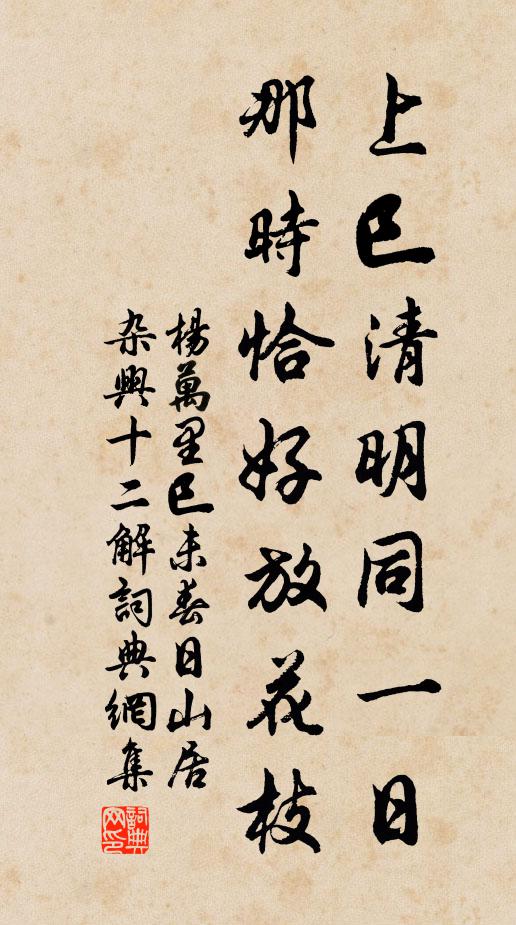 上巳清明同一日
那時恰好放花枝
楊萬里巳未春日山居
杂興十二解詞典網集
詞典
网印